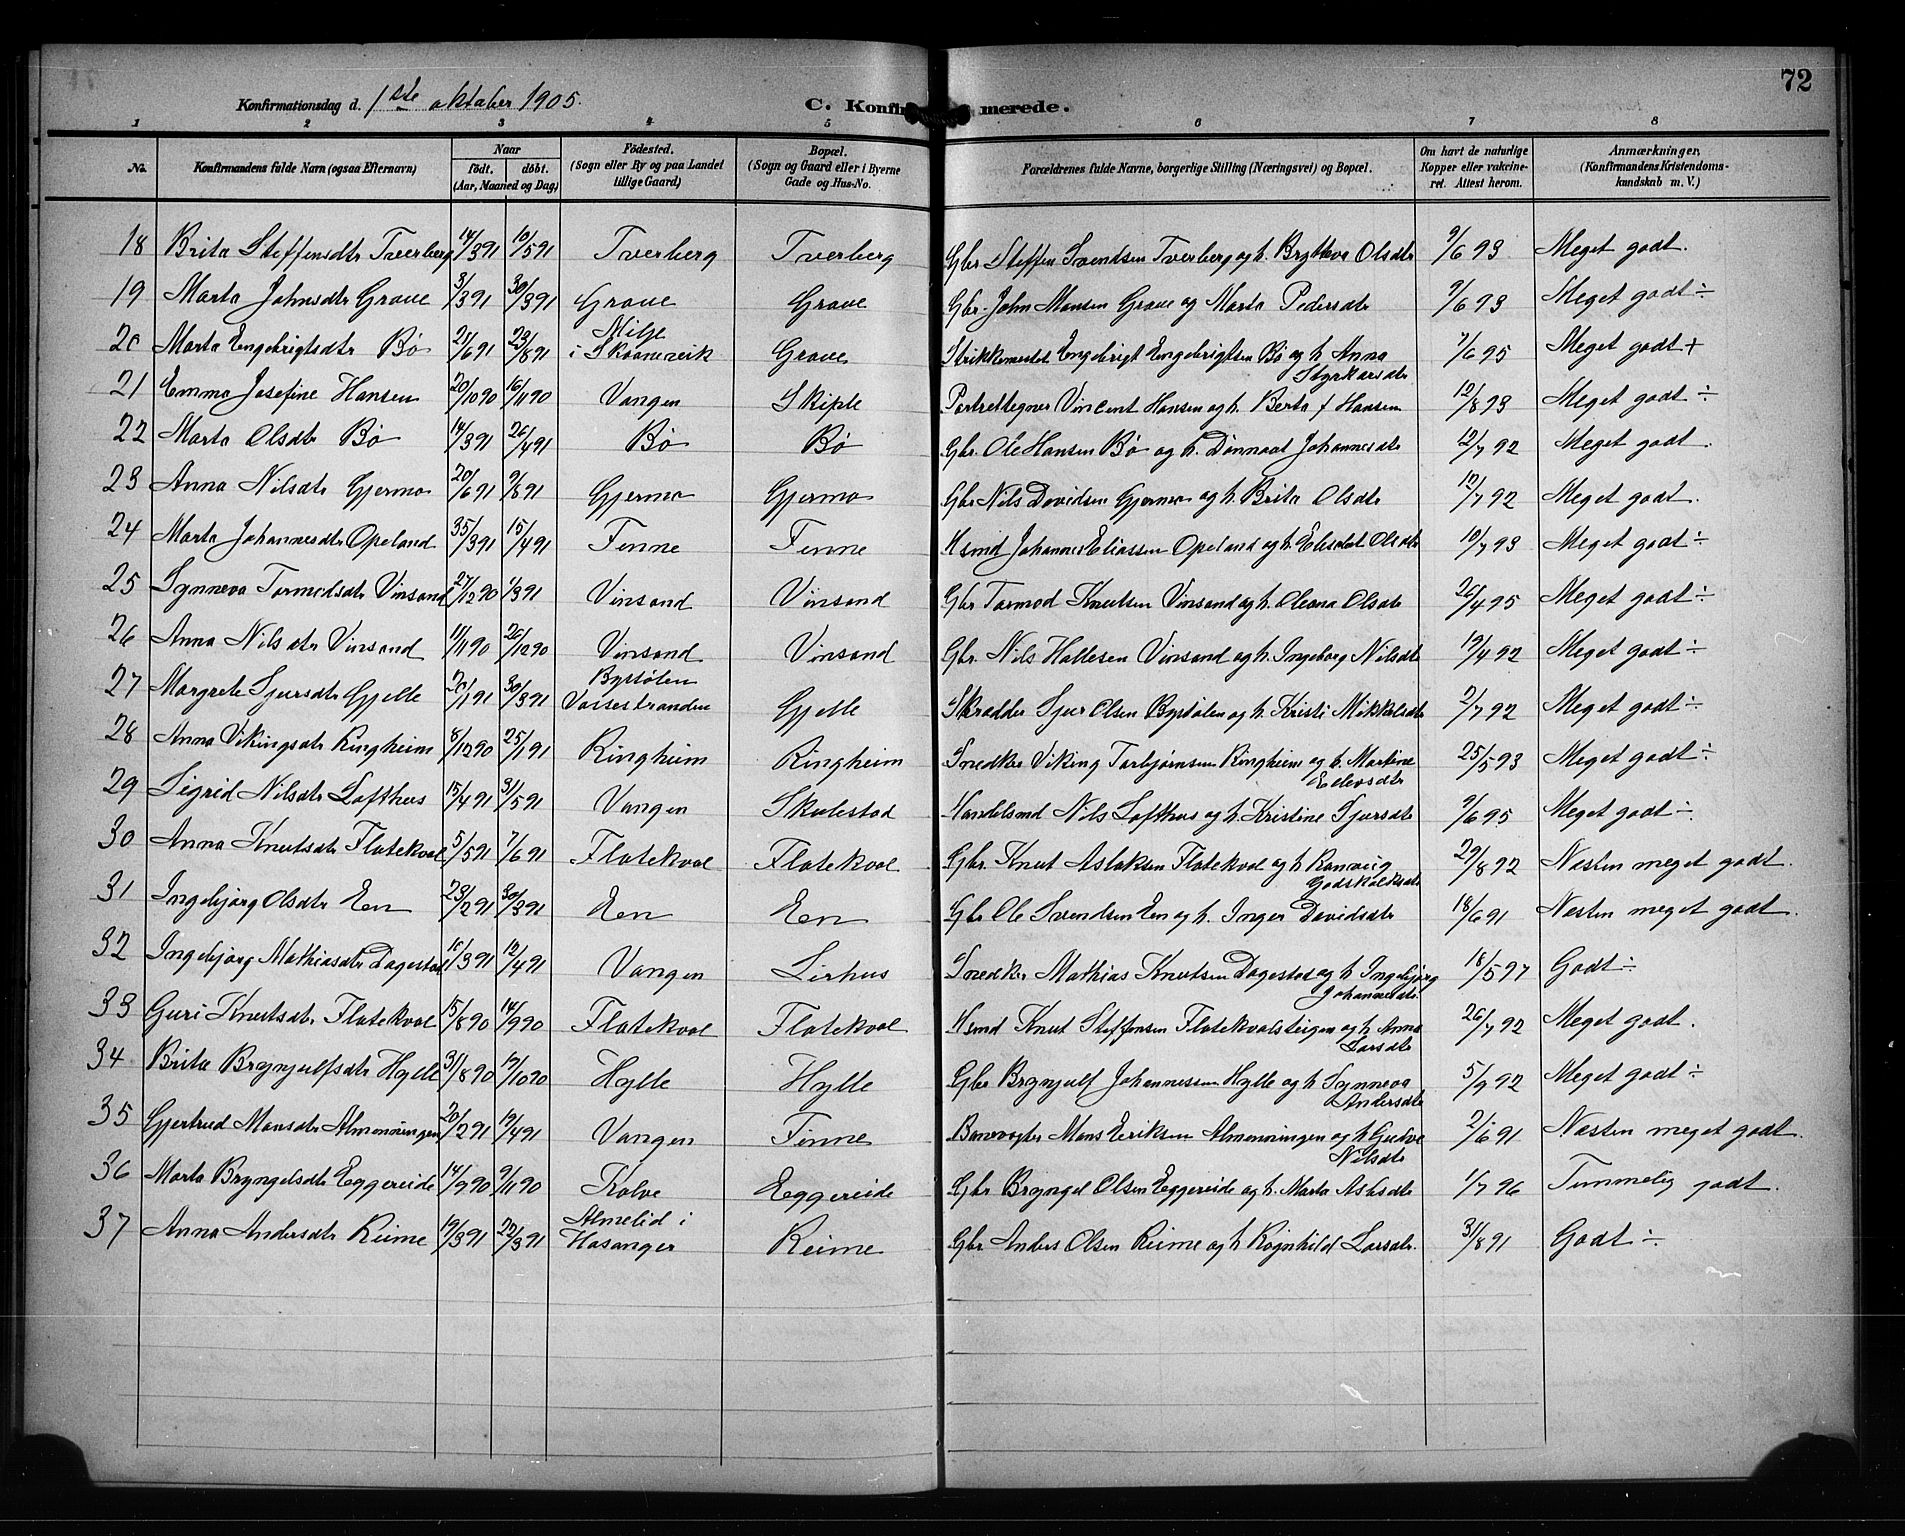 72
Konfirmationsdag d. 1ste oktober 1905.
C. Konfirmerede.
1 2 3 4 5 6 7 8
No. Konfirmandens fulde Navn (ogsaa Efternavn) Naar født. døbt. (Aar, Maaned og Dag) Fødested. (Sogn eller By og paa Landet tillige Gaard) Bopæl. (Sogn og Gaard eller i Byerne Gade og Hus-No. Forældrenes fulde Navne, borgerlige Stilling (Næringsvei) og Bopæl. Om havt de naturlige Kopper eller vakcineret. Attest herom. Anmærkninger, (Konfirmandens Kristendomskundskab m. V.)
18 Brita Steffensdtr Tverberg 14/3 91 10/5 91 Tverberg Tverberg Gbr Steffen Svendsen Tverberg og h. Brytteva Olsdtr 9/6 93 Meget godt.
19 Marta Johnsdtr Grove 3/3 91 30/3 91 Grove Grove Gbr. John Monsen Grove og Marta Pedersdtr 9/6 93 Meget godt ÷
20 Marta Engebrigtsdtr Bø 21/6 91 23/8 91 Milje i Skaanevik Grove Engebrigt Engebrigtsen Bø og h. Anna Styrkarsdtr 7/6 95 Meget godt +
21 Emma Josefine Hansen 20/10 90 16/11 90 Vangen Skiple Portrettegner Vincent Hansen og h. Berta f Hansen 12/8 93 Meget godt ÷
22 Marta Olsdtr Bø 14/3 91 26/4 91 Bø Bø Gbr. Ole Hansen Bø og h. Johannesdtr 12/7 92 Meget godt.
23 Anna Nilsdtr Gjermo 20/6 91 9/8 91 Gjermo Gjermo Gbr Nils Davidsen Gjermo og h. Brita Olsdtr 12/7 92 Meget godt.
24 Marta Johannesdtr Opeland 15/4 91 Finne Finne Hsmd Johannes Eliassen Opeland og h. Elisabet Olsdtr 10/7 93 Meget godt ÷
25 Synneva Tormodsdtr Vinsand 27/12 90 1/3 91 Vinsand Vinsand Gbr Tormod Knutsen Vinsand og h. Oleana Olsdtr 26/4 95 Meget godt ÷
26 Anna Nilsdtr Vinsand 11/11 90 26/12 90 Vinsand Vinsand Gbr. Nils Hallesen Vinsand og h. Ingeborg Nilsdtr 19/4 92 Meget godt ÷
27 Margrete Sjursdtr Gjelle 20/1 91 30/3 91 Bystølen Vossestranden Gjelle Skrædder Sjur Olsen Bystølen og h. Kristi Mikkelsdtr 2/7 92 Meget godt ÷
28 Anna Vikingsdtr Ringheim 8/12 90 25/1 91 Ringheim Ringheim Snedker Viking Torbjørnsen Ringheim og h. Martine 25/5 93 Meget godt ÷
29 Sigrid Nilsdtr Lofthus 15/4 91 31/5 91 Vangen Skulestad Handelsmd Nils Lofthus og h. Kristine Sjursdtr 9/6 95 Meget godt ÷
30 Anna Knutsdtr Flatekval 5/5 91 7/6 91 Flatekval Flatekval Gbr. Knut Aslaksen Flatekval og h. Ranveig Godskalksdtr 29/8 92 Næsten meget godt.
31 Ingebjørg Olsdtr Een 23/2 91 30/3 91 Een Een Gbr Ole Svendsen Een og h. Inger Davidsdtr 18/6 91 Næsten meget godt.
32 Ingebjørg Mathiasdtr Dagestad 10/3 91 12/4 91 Vangen Lirhus Snedker Mathias Knutsen Dagestad og h Ingebjørg Johannesdtr. 18/5 97 Godt ÷
33 Guri Knutsdtr Flatekval 15/8 90 14/9 90 Flatekval Flatekval Hsmd Knut Steffensen Flatekvalsteigen og h. Anna Larsdtr 26/7 92 Meget godt.
34 Brita Brynjulfsdtr Hylle 31/8 90 19/10 90 Hylle Hylle Gbr Brynjulf Johannessen Hylle og h Synneva Andersdtr 5/9 92 Meget godt ÷
35 Gjertrud Monsdtr Almenningen 20/2 91 19/4 91 Vangen Finne Banevogter Mons Eriksen Almenningen og h. Gudve Nilsdtr 2/6 91 Næsten meget godt.
36 Marta Bryngelsdtr Eggereide 14/9 90 9/11 90 Kolve Eggereide Gbr Bryngel Olsen Eggereide og h. Marta 1/7 96 Temmelig godt.
37 Anna Andersdtr Reime 19/3 91 22/3 91 Almelid i Hosanger Reime Gbr Anders Olsen Reime og h Rognhild Larsdtr. 31/8 91 Godt ÷